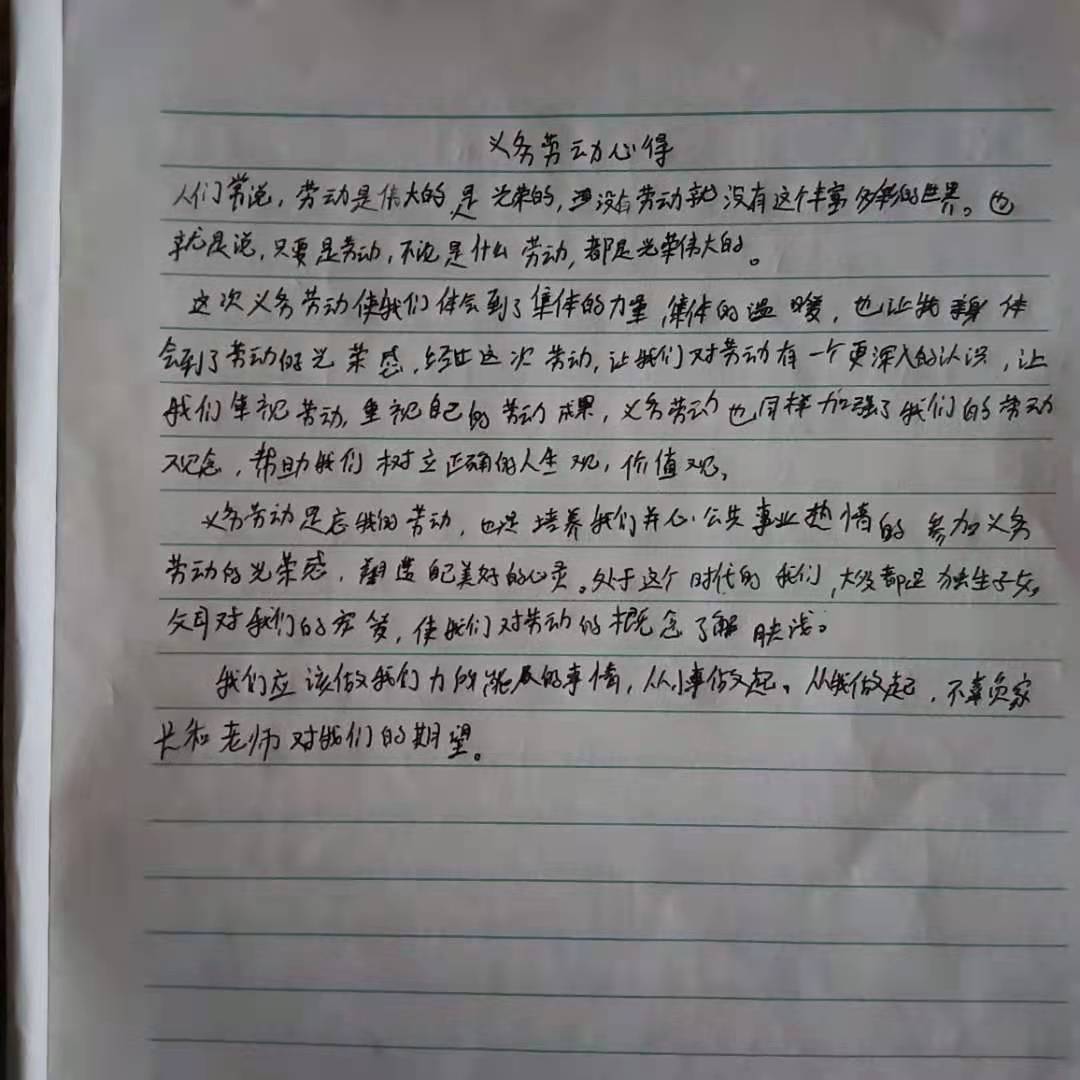 义务劳动心得
人们常说，劳动是伟大的是光荣的，没有劳动就没有这个丰富多彩的世界。也
就是说，只要是劳动，不论是什么劳动，都是光荣伟大的。
这次义务劳动使我们体会到了集体的力量，集体的温暖，也让我亲身体
会到了劳动的光荣感，经过这次劳动，让我们对劳动有一个更深入的认识，让
我们重视劳动，重视自己的劳动成果，义务劳动也同样加强了我们的劳动
观念，帮助我们树立正确的人生观，价值观，
义务劳动是忘我的劳动，也是培养我们关心公共事业热情的参加义务
劳动的光荣感，塑造自己美好的心灵。处于这个时代的我们，大多都是独生子女，
父母对我们的宠爱，使我们对劳动的概念了解肤浅。
我们应该做我们力所能及的事情，从小事做起，从我做起，不辜负家
长和老师对我们的期望。